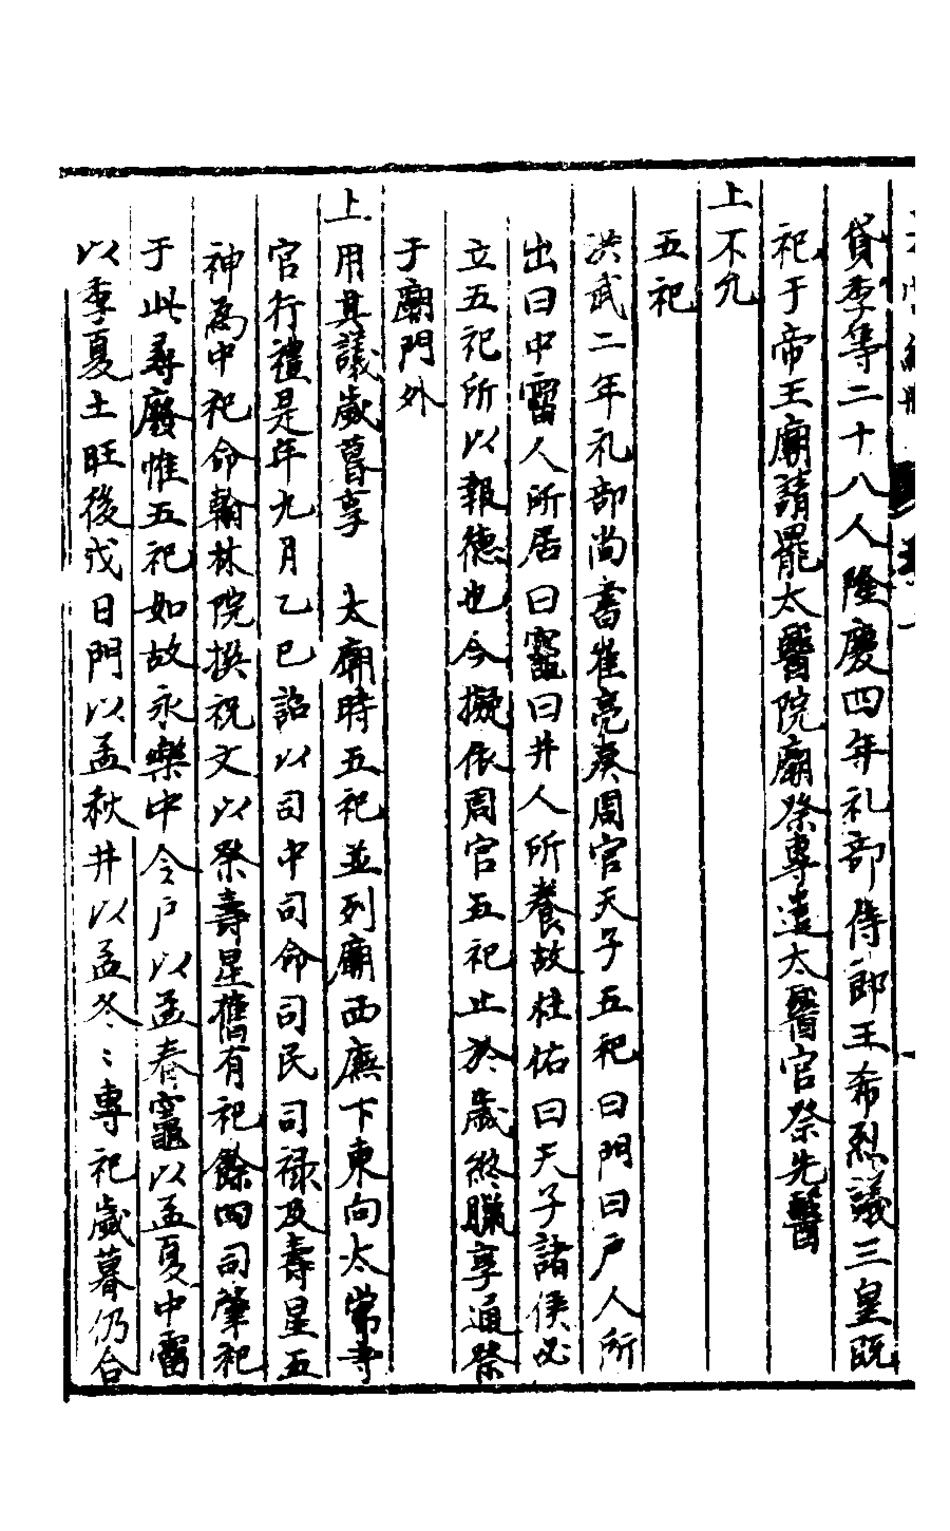 貸季等二十八人隆慶四年礼部侍郎王希烈議三皇既
祀于帝王廟請罷太醫院廟祭專遣太醫官祭先醫
上不允
五祀
洪武二年礼部尚書崔亮奏周官天子五祀曰門曰戶人所
出曰中霤人所居曰竈曰井人所養故杜佑曰天子諸侯必
立五祀所以報德也今擬依周官五祀止於歲終臘享通祭
于廟門外
上用其議歲暮享　太廟時五祀並列廟西廡下東向太常寺
官行禮是年九月乙巳詔以司中司命司民司祿及壽星五
神為中祀命翰林院撰祝文以祭壽星舊有祀餘四司肇祀
于此尋廢惟五祀如故永樂中令戶以孟春竈以孟夏中霤
以季夏土旺後戊日門以孟秋井以孟冬〻專祀歲暮仍合